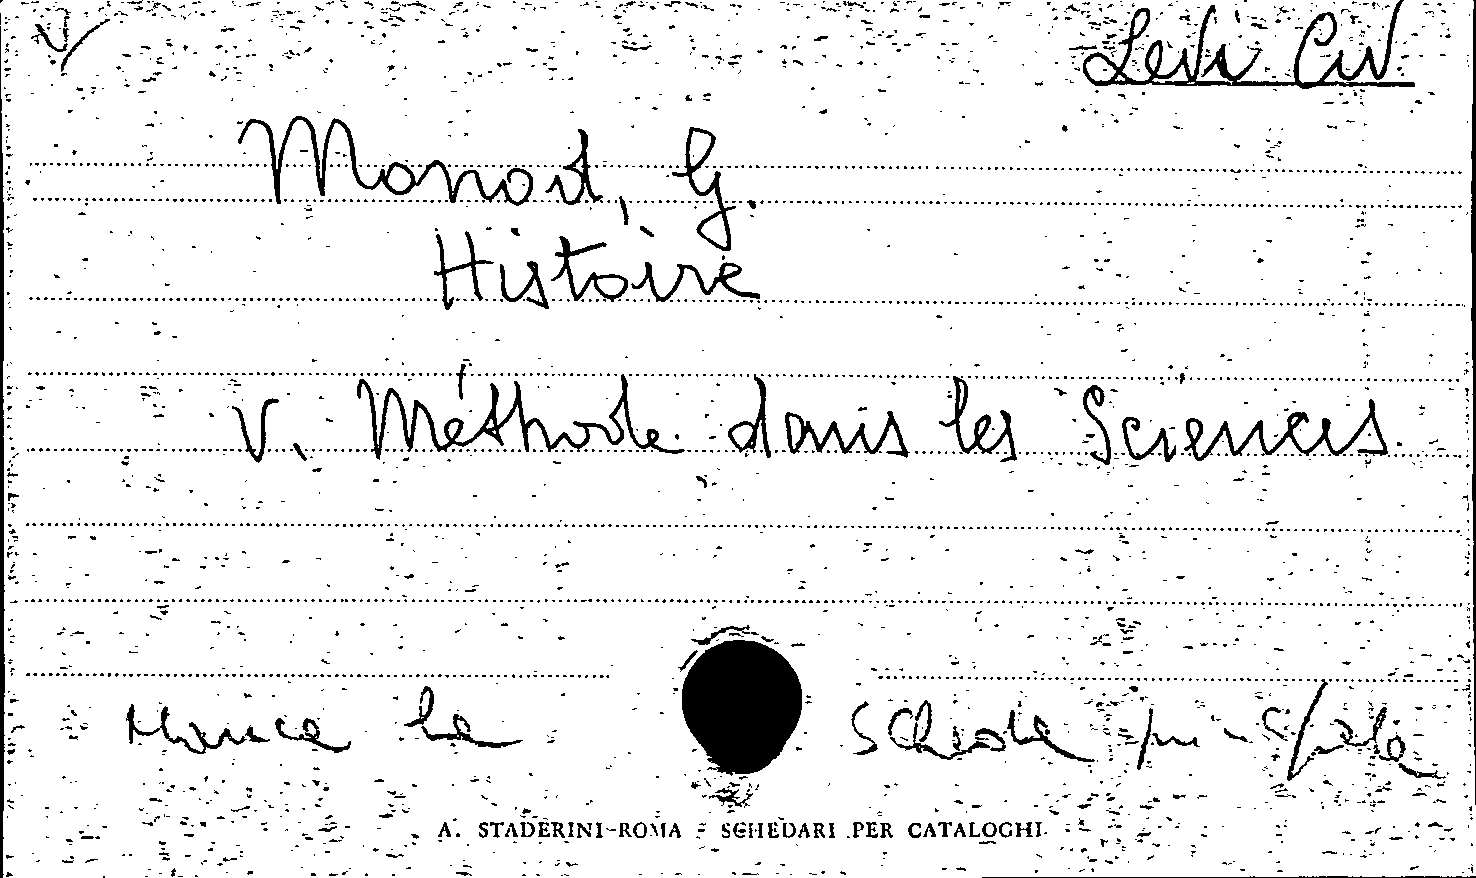 Levi Civ
Monod, G.
Histoire
V. Méthode dans les Sciences
Manca la scheda principale
A. STADERINI-ROMA - SCHEDARI PER CATALOGHI